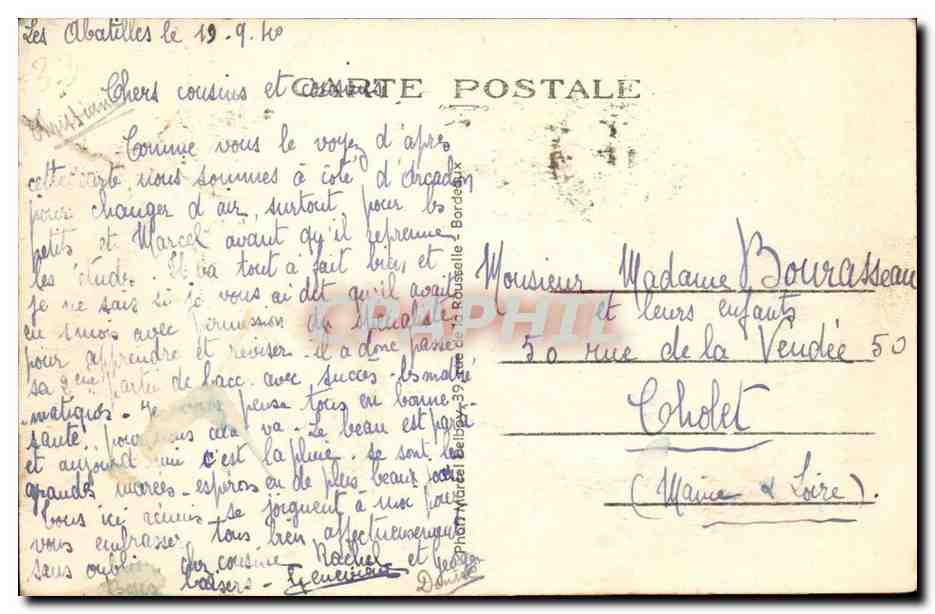 Les Abatilles le 19-9-40
CARTE POSTALE
Chers cousins et cousines
Comme vous le voyez d'après
cette carte nous sommes à côté d'Arcachon
pour changer d'air, surtout pour les
petits et Marcel avant qu'il reprenne
les études. Il va tout à fait bien, et
je ne sais si je vous ai dit qu'il avait
eu 1 mois avec permission du spécialiste
pour apprendre et reviser. il a donc passé
sa 2ème partie de bacc. avec succès - les mathé
matiques - Je vous pense tous en bonne
santé, pour nous cela va - Le beau est parti
et aujourd'hui c'est la pluie. se sont les
grandes marées - espérons en de plus beaux jours
tous ici réunis se joignent à moi pour
vous embrasser tous bien affectueusement
sans oublier cher cousine Rachel et
Bons baisers - Geneviève
Denise
Monsieur Madame Bourasseau
et leurs enfants
50 rue de la Vendée 50
Cholet
(Maine & Loire).
Phot. Marcel Delboy, 39 rue de la Rousselle - Bordeaux
CPAPHIL